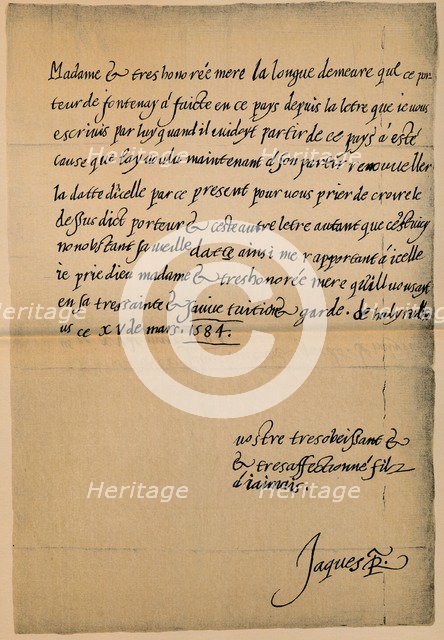 Madame & treshonorée mere la longue demeure que ce por-
teur de fontenay à faicte en ce pays depuis la letre que ie vous
escrivis par luy quand il cuidyt partir de ce pays à esté
cause que iay voulu maintenant à son partir renouveller
la datte dicelle par ce present pour vous prier de croire le
dessus dict porteur & ceste autre letre autant que
nonobstant sa vieille datte ainsi me rapportant à icelle
ie prie dieu madame & treshonorée mere quil vous ayt
en sa tressainte & garde. de
us ce xv de mars. 1584.
vostre tresobeissant &
& tresaffectionné filz
diamais.
Jaques R.
Heritage
Heritage
Heritage
Heritage
Heritage
Heritage
Heritage
Heritage